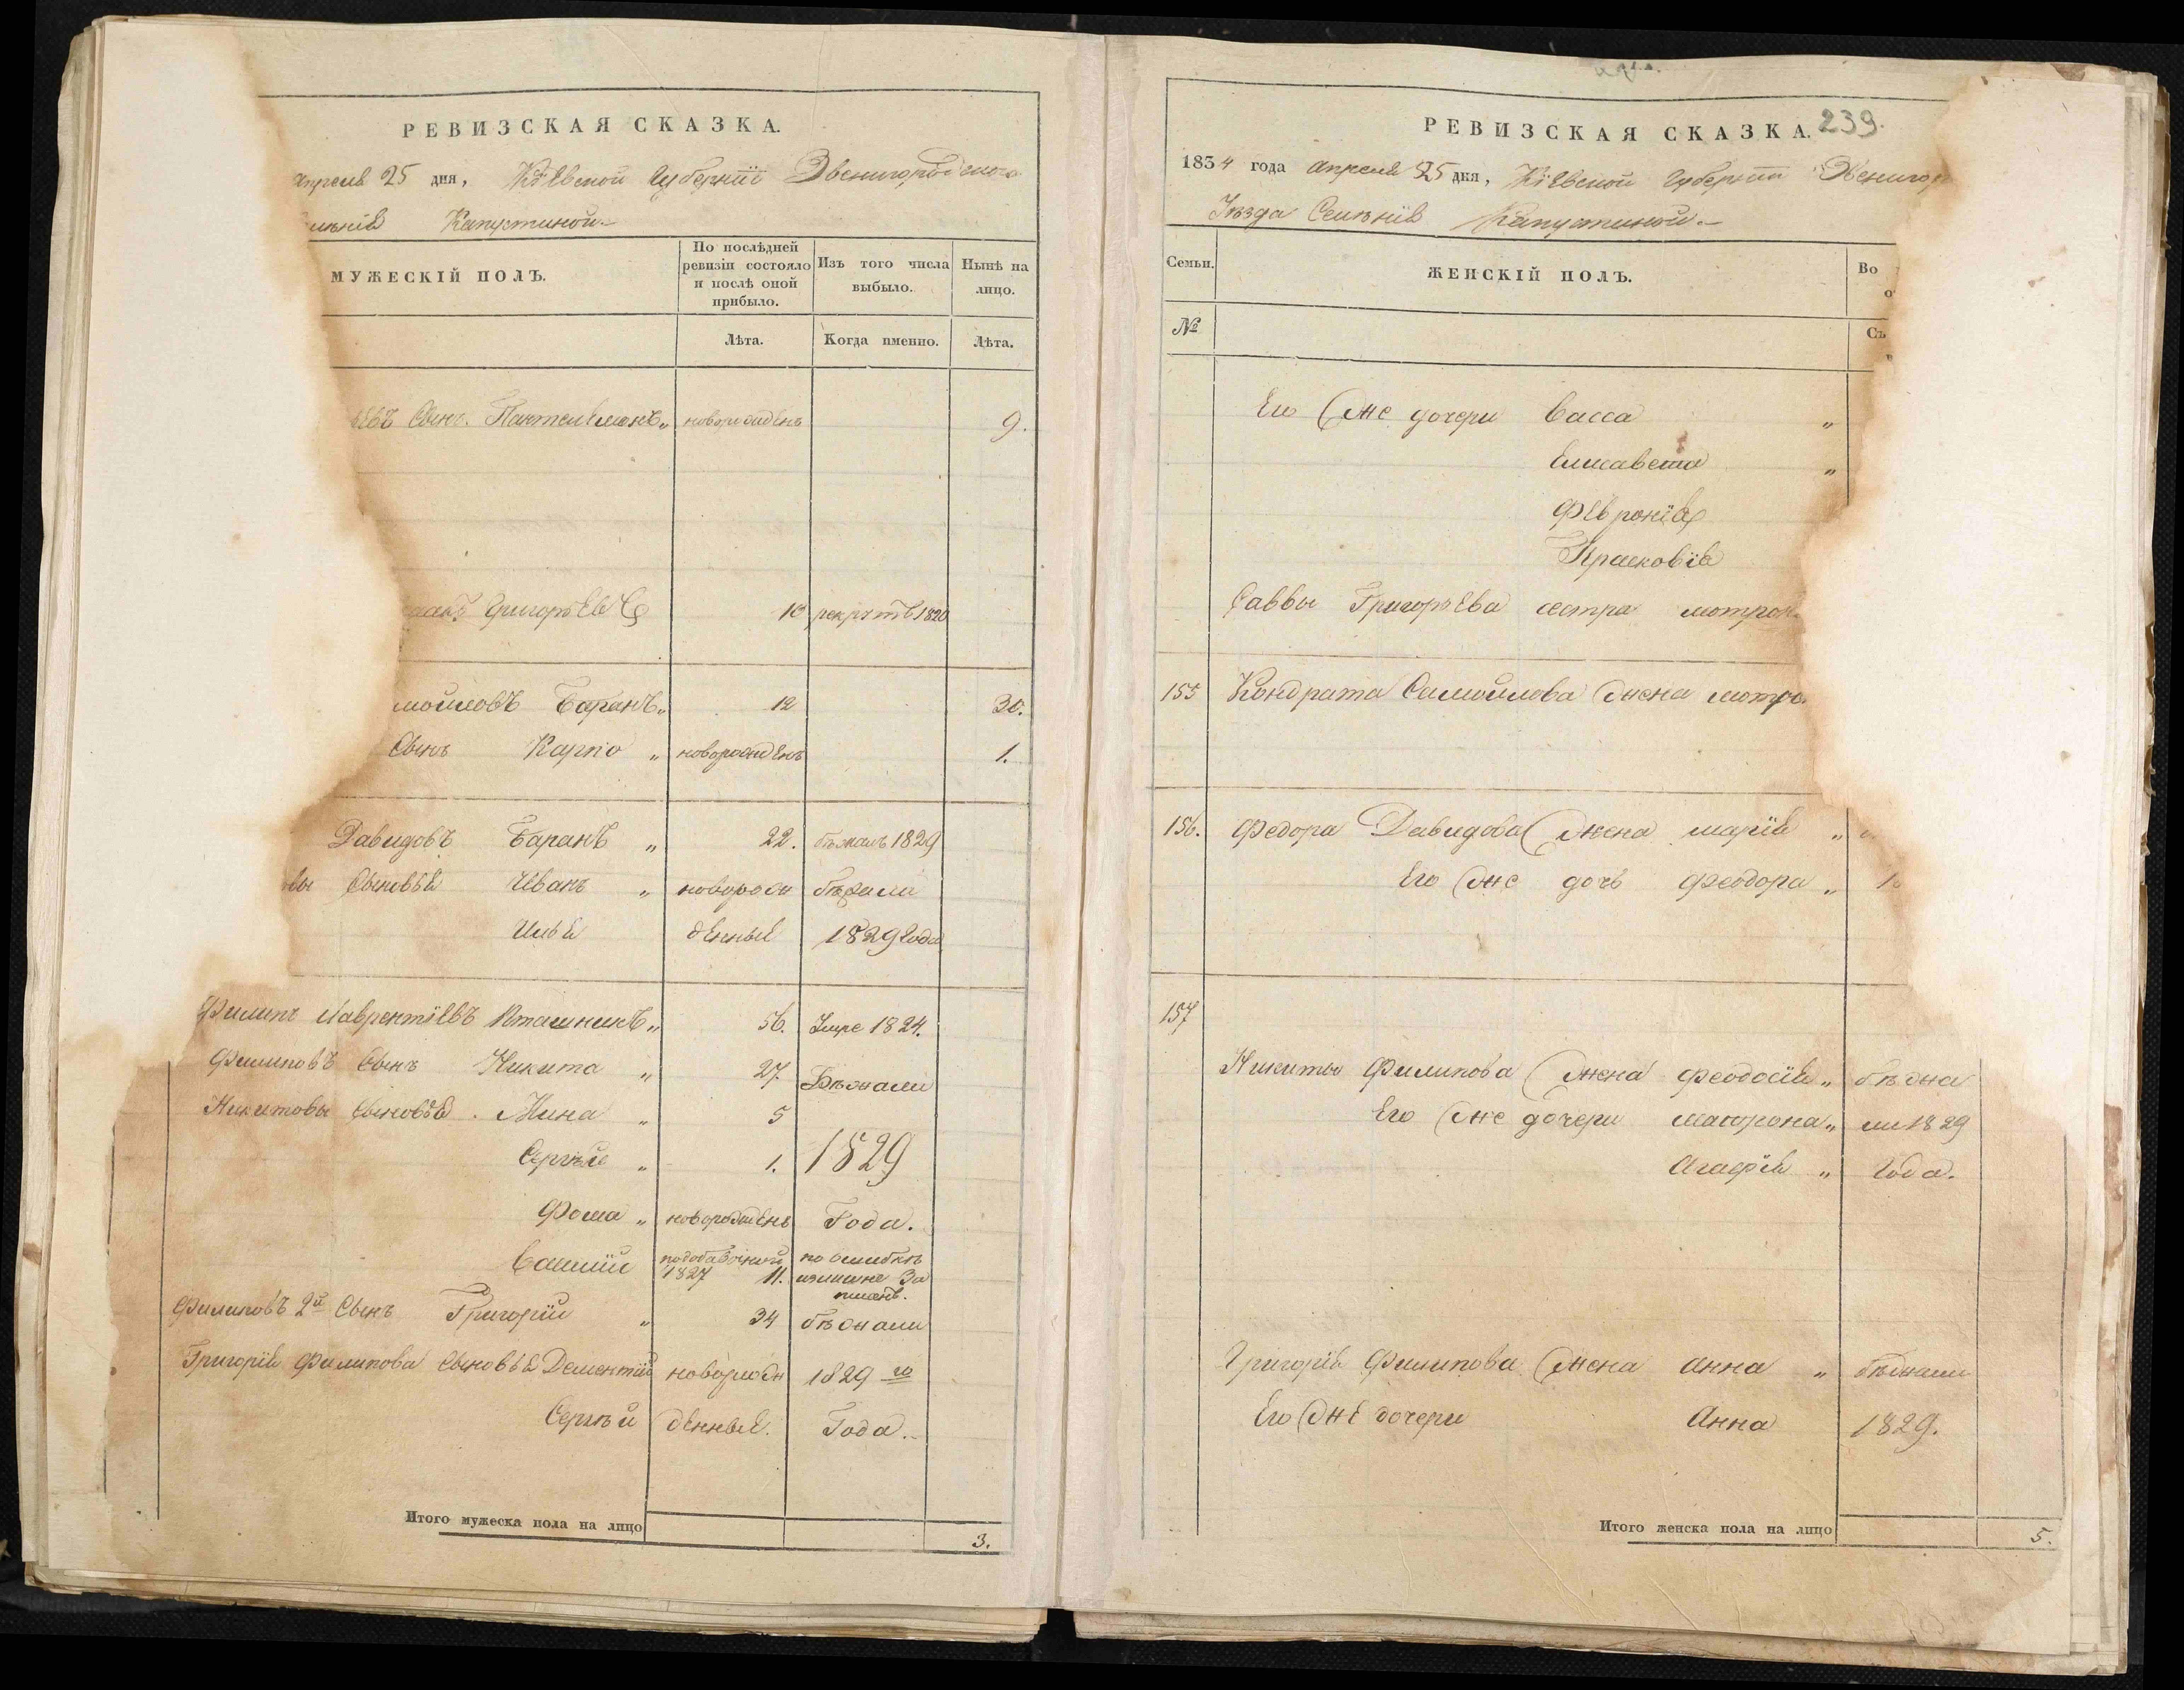 РЕВИЗСКАЯ СКАЗКА.
апреля 25 дня, Кіевской Губерніи Звенигородского
Капустиной
МУЖЕСКІЙ ПОЛЪ.
По послѣдней ревизіи состояло и послѣ оной прибыло.
Изъ того числа выбыло.
Нынѣ на лицо.
Лѣта.
Когда именно.
Лѣта.
евъ Сынъ Пантелимонъ „ новорожденъ 9.
Григорьевъ 10 рекрутъ 1820
мойловъ Баранъ „ 12 30.
Сынъ Карпо „ новорожденъ 1.
Давидовъ Баранъ „ 22. бѣжалъ 1829
вы Сыновья Иванъ „ новорож бѣжали
Илья денные 1829 года
Филипъ Лаврентіевъ Пташникъ „ 56. Умре 1824.
Филиповъ Сынъ Никита „ 27. Бѣжали
Никитовы Сыновья Мина „ 5
Сергѣй „ 1. 1829
Фома „ новорожденъ Года.
Василій подобавочной 1827 11. по ошибкѣ излишне записанъ.
Филиповъ 2й Сынъ Григорій „ 34 бѣжали
Григорія Филипова Сыновья Дементій новорож 1829 го
Сергѣй денные. Года.
Итого мужеска пола на лицо 3.
239.
РЕВИЗСКАЯ СКАЗКА.
1834 года апреля 25 дня, Кіевской Губерніи Звениго
Уѣзда Селенія Капустиной.
Семьи.
ЖЕНСКІЙ ПОЛЪ.
Во
№
Съ
Его же дочери Васса „
Елисавета „
Февронія
Прасковія
Саввы Григорьева сестра мотрон
155 Кондрата Самойлова жена мотро
156. Федора Давидова жена марія „
Его же дочь Феодора „
157
Никиты Филипова жена Феодосія „ бѣжа
Его же дочери матрона „ ли 1829
Агафія „ Года.
Григорія Филипова жена Анна „ бѣжали
Его же дочери Анна 1829.
Итого женска пола на лицо 5.